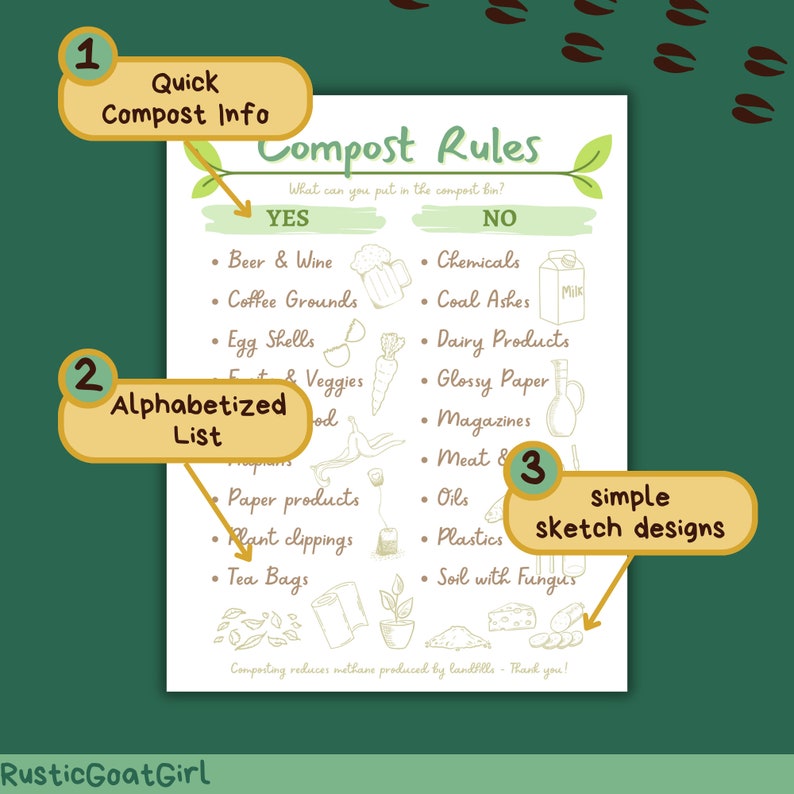 1
Quick
Compost Info
Compost Rules
What can you put in the compost bin?
YES
Beer & Wine
Coffee Grounds
Egg Shells
& Veggies
Paper products
Plant clippings
Tea Bags
NO
Chemicals
Coal Ashes
Dairy Products
Glossy Paper
Magazines
Meat &
Oils
Plastics
Soil with Fungus
Milk
2
Alphabetized
List
3
simple
sketch designs
Composting reduces methane produced by landfills - Thank you!
RusticGoatGirl